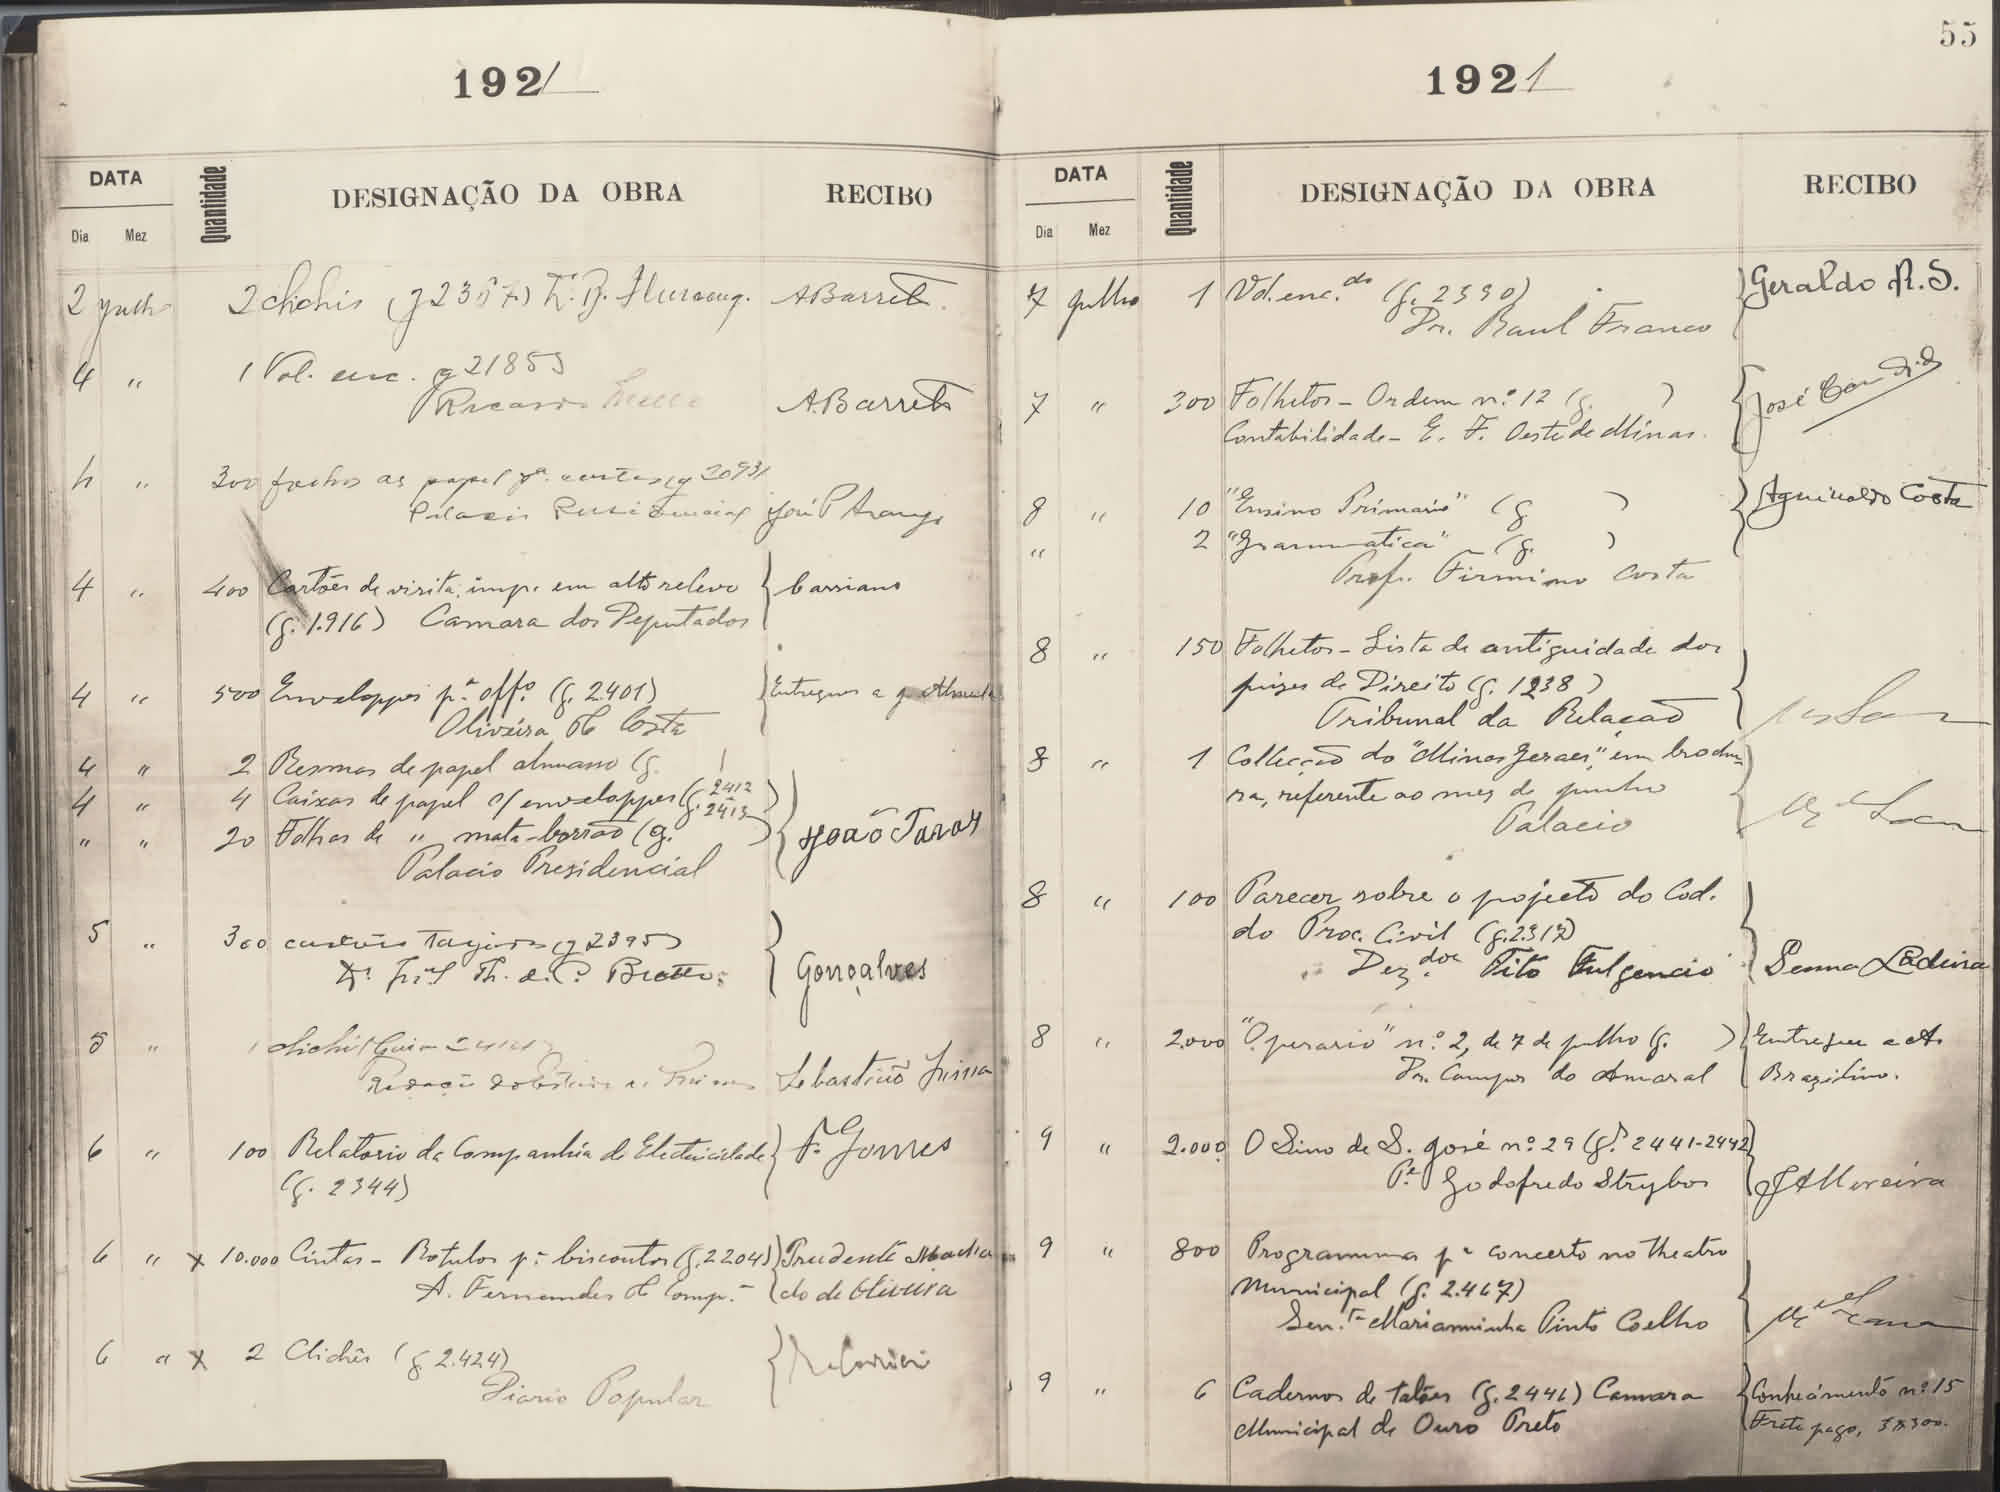 1921
DATA
Quantidade
DESIGNAÇÃO DA OBRA
RECIBO
Dia Mez
2 julho 2 clichés (g 2367) A Barreto.
4 " 1 Vol. enc. g 2185)
Ricardo A. Barreto
4 " 300 papel pa. cartas (g 2093)
Palacio Presidencial José P Araujo
4 " 400 Cartões de visita, imp. em alto relevo Cassiano
(g. 1.916) Camara dos Deputados
4 " 500 Enveloppes pa. offo. (g. 2401) Entregues a
Oliveira & Costa
4 " 2 Resmas de papel almasso (g. )
4 " 4 Caixas de papel c/ enveloppes (g. 2412
g. 2413)
" " 20 Folhas de " mata-borrão (g. ) João
Palacio Presidencial
5 " 300 cartões (g 2395)
Gonçalves
5 " 1 cliché (Guia
Sebastião
6 " 100 Relatorio da Companhia de Electricidade F. Gomes
(g. 2344)
6 " x 10.000 Cintas - Rotulos pa. biscoutos (g. 2204) Prudente Macha
A. Fernandes & Comp.a do de Oliveira
6 " x 2 Clichés (g 2.424)
Diario Popular
55
1921
DATA
Quantidade
DESIGNAÇÃO DA OBRA
RECIBO
Dia Mez
7 julho 1 Vol. enc.do (g. 2390) Geraldo R. S.
Dr. Raul Franco
7 " 300 Folhetos - Ordem n.o 12 (g. ) José
Contabilidade - E. F. Oeste de Minas.
8 " 10 "Ensino Primario" (g ) Aguinaldo Costa
" 2 "Grammatica" (g. )
Prof. Firmino Costa
8 " 150 Folhetos - Lista de antiguidade dos
juizes de Direito (g. 1238)
Tribunal da Relação
8 " 1 Collecção do "Minas Geraes", em brochu-
ra, referente ao mez de junho
Palacio
8 " 100 Parecer sobre o projecto do Cod.
do Proc. Civil (g. 2.317)
Dez.dor Tito Fulgencio Senna Ladeira
8 " 2.000 "Operario" n.o 2, de 7 de julho (g. ) Entregue a A.
Dr. Campos do Amaral Brazilino.
9 " 2.000 O Sino de S. José n.o 29 (g.s 2441-2442)
Pe. Godofredo Strybos J A Moreira
9 " 800 Programma pa concerto no theatro
Municipal (g. 2.467)
Sen.ta Marianninha Pinto Coelho
9 " 6 Cadernos de talões (g. 2446) Camara Conhecimento n.o 15
Municipal de Ouro Preto Frete pago, 3$300.